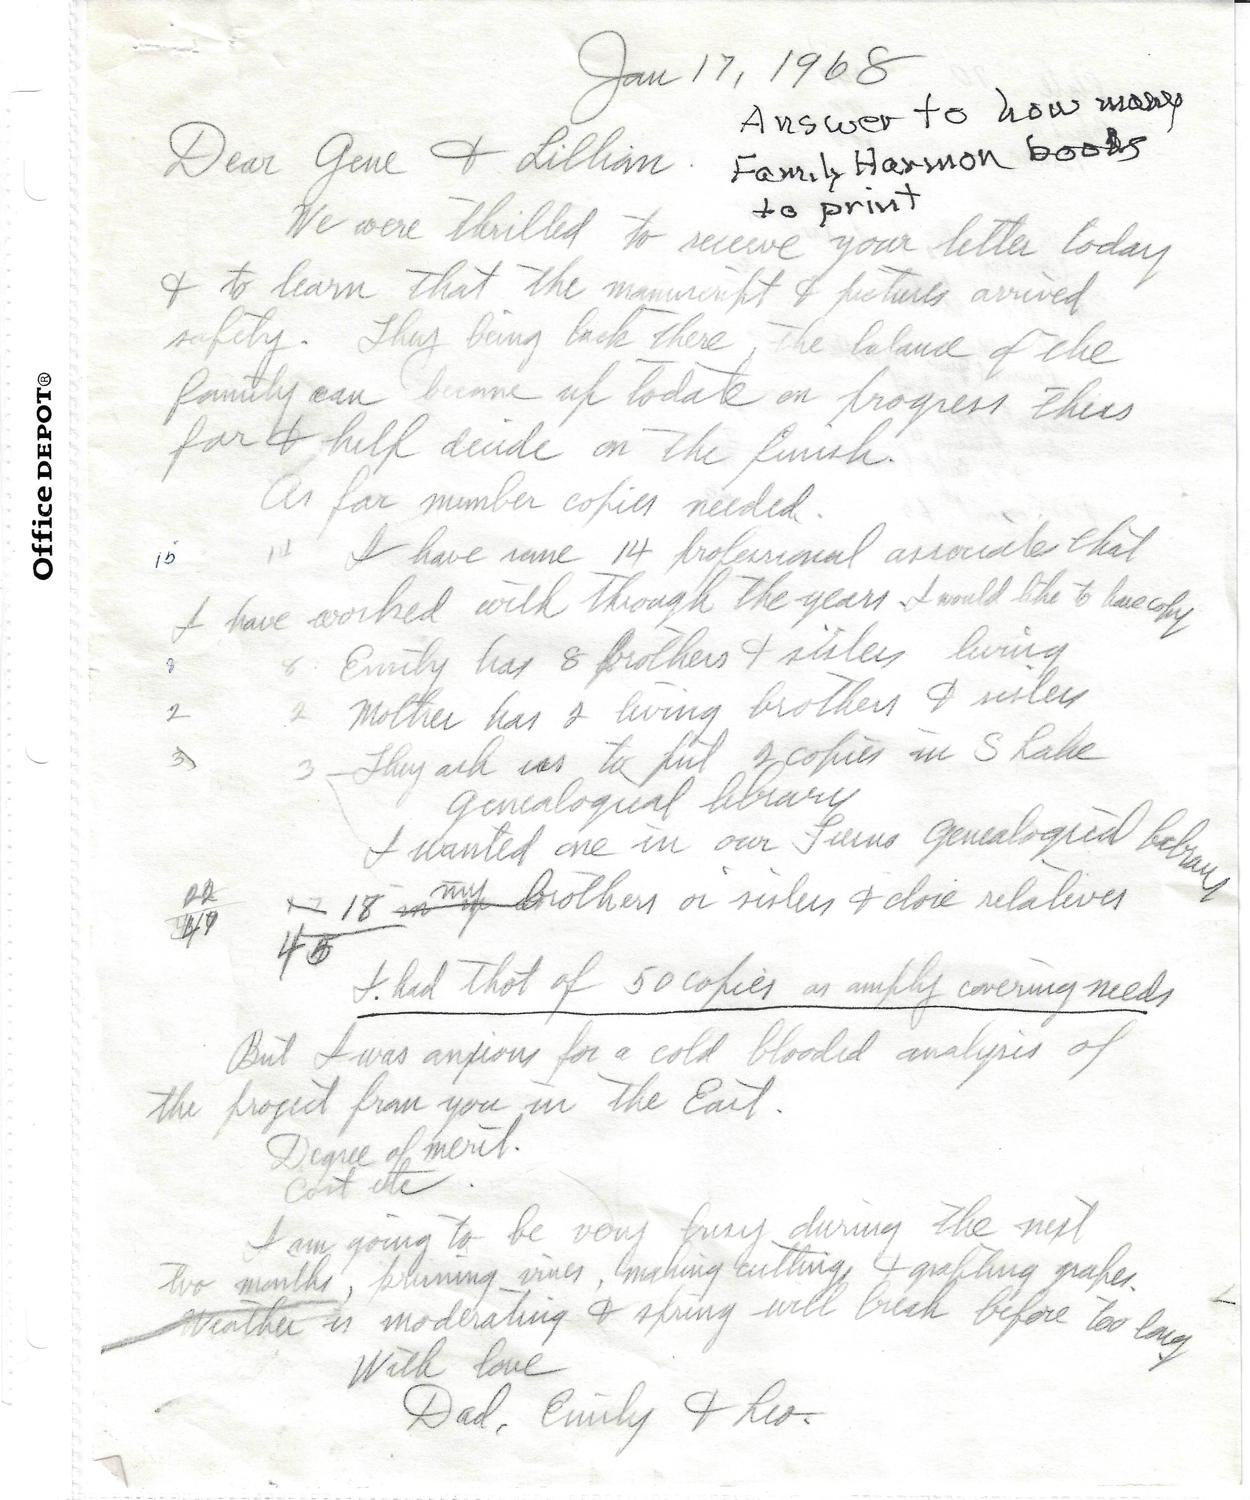 Jan 17, 1968
Answer to how many
Family Harmon books
to print
Dear Gene & Lillian.
We were thrilled to receive your letter today
& to learn that the manuscript & pictures arrived
safety. They being back there, the balance of the
family can become up todate on progress thus
far & help decide on the finish.
As far number copies needed.
15 I have some 14 professional associates that
I have worked with through the years. I would like to have copy
8 8. Emily has 8 brothers & sisters living
2 2 Mother has 2 living brothers & sisters
3 3 They ask us to put 2 copies in S Lake
Genealogical library
I wanted one in our Genealogical library
22 18 my brothers or sisters & close relatives
49 45
I. had that of 50 copies as amply covering needs
But I was anxious for a cold blooded analysis of
the project from you in the East.
Degree of merit.
Cost etc.
I am going to be very busy during the next
two months, pruning vines, making cuttings & grafting grapes.
Weather is moderating & spring will break before too long
With love
Dad, Emily & Leo.
Office DEPOT®